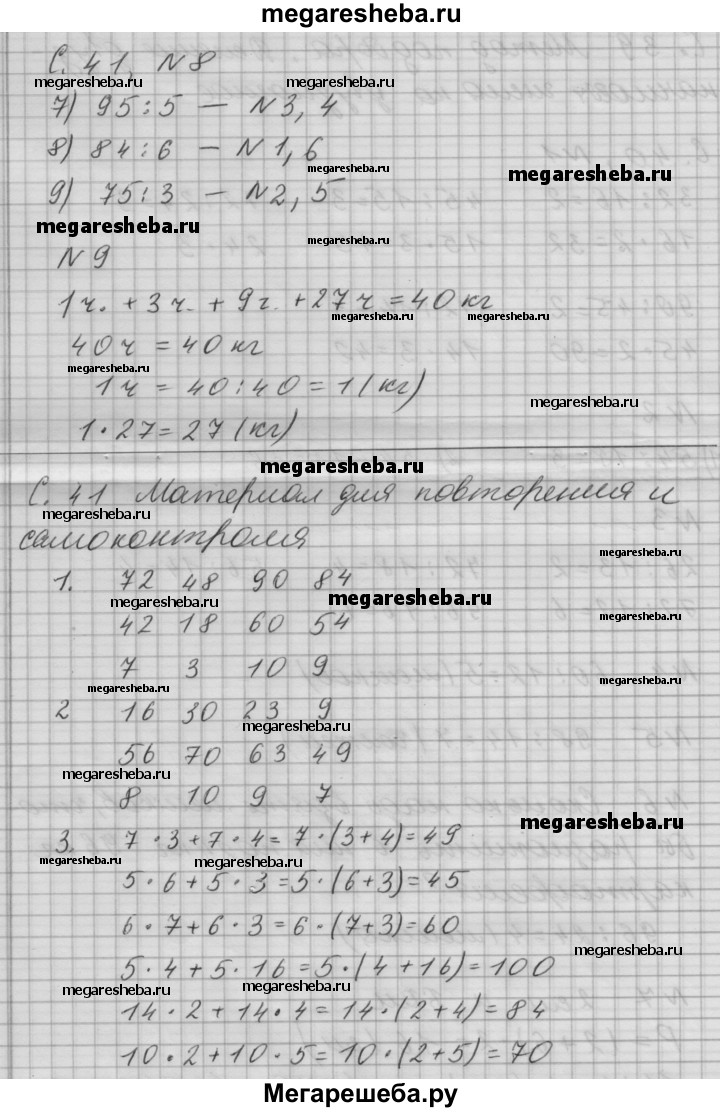 megaresheba.ru
С. 41, N8
megaresheba.ru megaresheba.ru
7) 95:5 — N3, 4
8) 84:6 — N1, 6
megaresheba.ru megaresheba.ru
9) 75:3 — N2, 5
megaresheba.ru megaresheba.ru
N9
1ч. + 3ч. + 9ч. + 27ч = 40 кг
megaresheba.ru megaresheba.ru
40ч = 40 кг
megaresheba.ru
1ч = 40:40 = 1 (кг)
megaresheba.ru
1·27 = 27 (кг)
megaresheba.ru
С. 41 Материал для повторения и
megaresheba.ru
самоконтроля
megaresheba.ru
1. 72 48 90 84
megaresheba.ru megaresheba.ru
42 18 60 54
7 3 10 9
megaresheba.ru megaresheba.ru
2 16 30 23 9
megaresheba.ru
56 70 63 49
megaresheba.ru
8 10 9 7
megaresheba.ru
3. 7·3+7·4=7·(3+4)=49
megaresheba.ru megaresheba.ru
5·6+5·3=5·(6+3)=45
6·7+6·3=6·(7+3)=60
megaresheba.ru
5·4+5·16=5·(4+16)=100
megaresheba.ru megaresheba.ru
14·2+14·4=14·(2+4)=84
10·2+10·5=10·(2+5)=70
Мегарешеба.ру